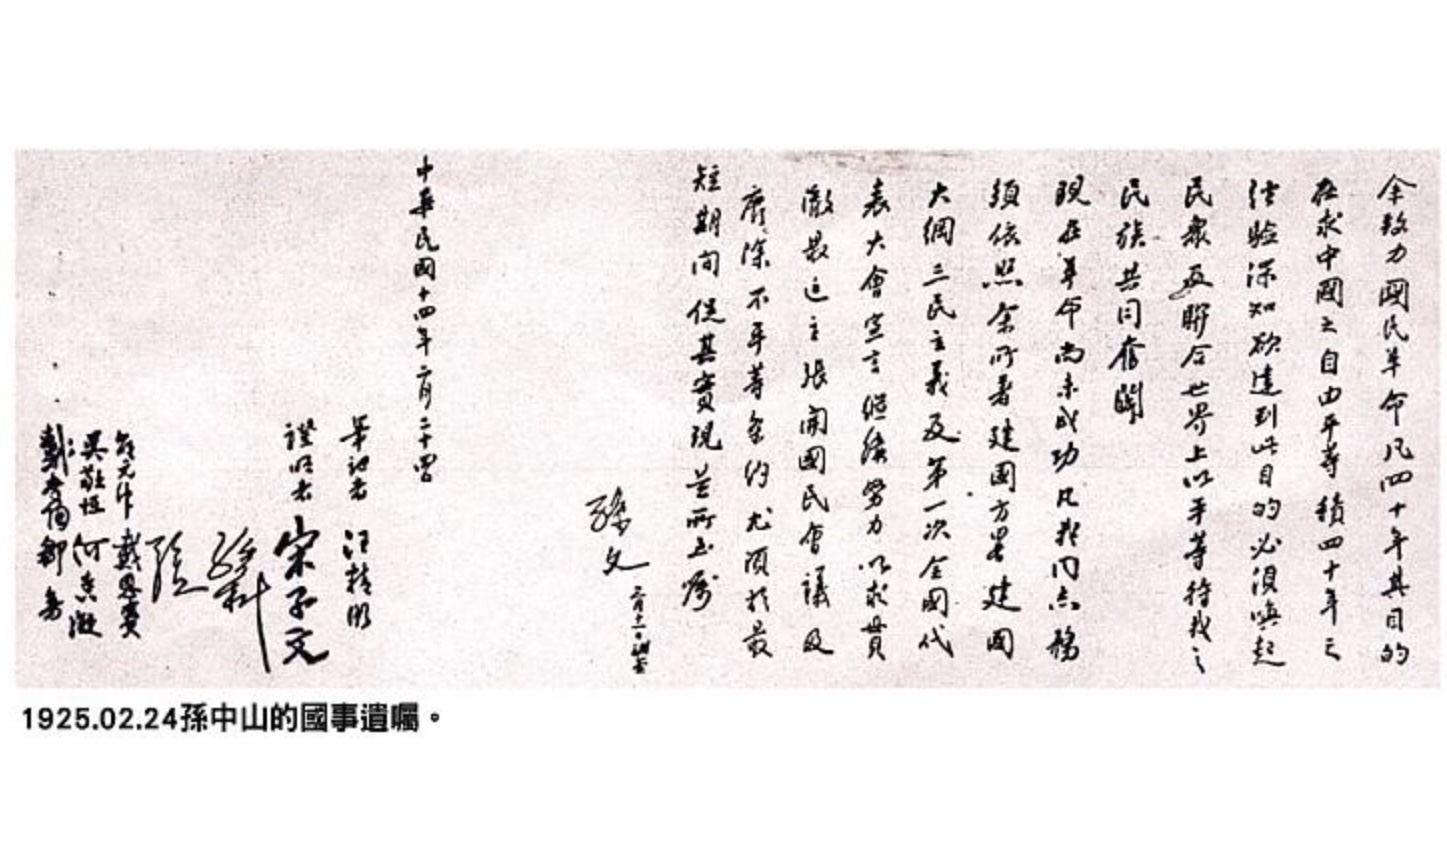 余致力國民革命凡四十年其目的
在求中國之自由平等積四十年之
經驗深知欲達到此目的必須喚起
民衆及聯合世界上以平等待我之
民族共同奮鬭
現在革命尚未成功凡我同志務
須依照余所著建國方畧建國
大綱三民主義及第一次全國代
表大會宣言繼續努力以求貫
徹最近主張開國民會議及
廢除不平等條約尤須於最
短期間促其實現是所至囑
孫文 三月十一日補簽
中華民國十四年二月二十四日
筆記者 汪精衛
證明者 宋子文
孫科
孔
邵元冲 戴恩賽
吳敬恒 何香凝
戴季陶 鄒魯
1925.02.24孫中山的國事遺囑。